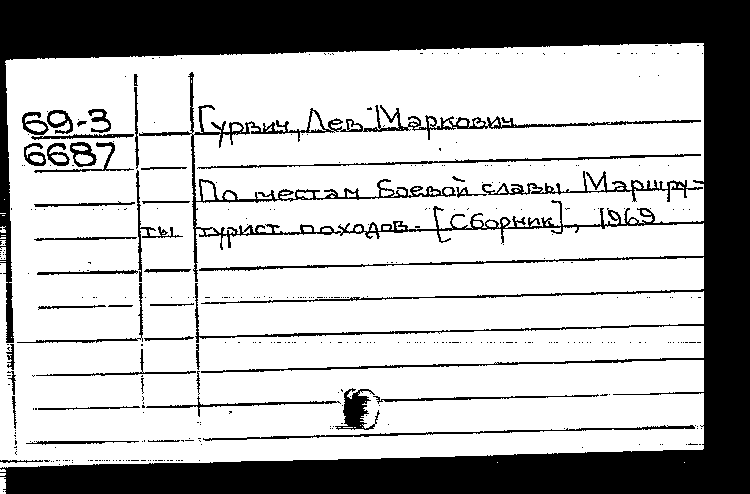 69-3 Гурвич, Лев Маркович
6687
По местам боевой славы. Маршру=
ты турист. походов. [Сборник], 1969